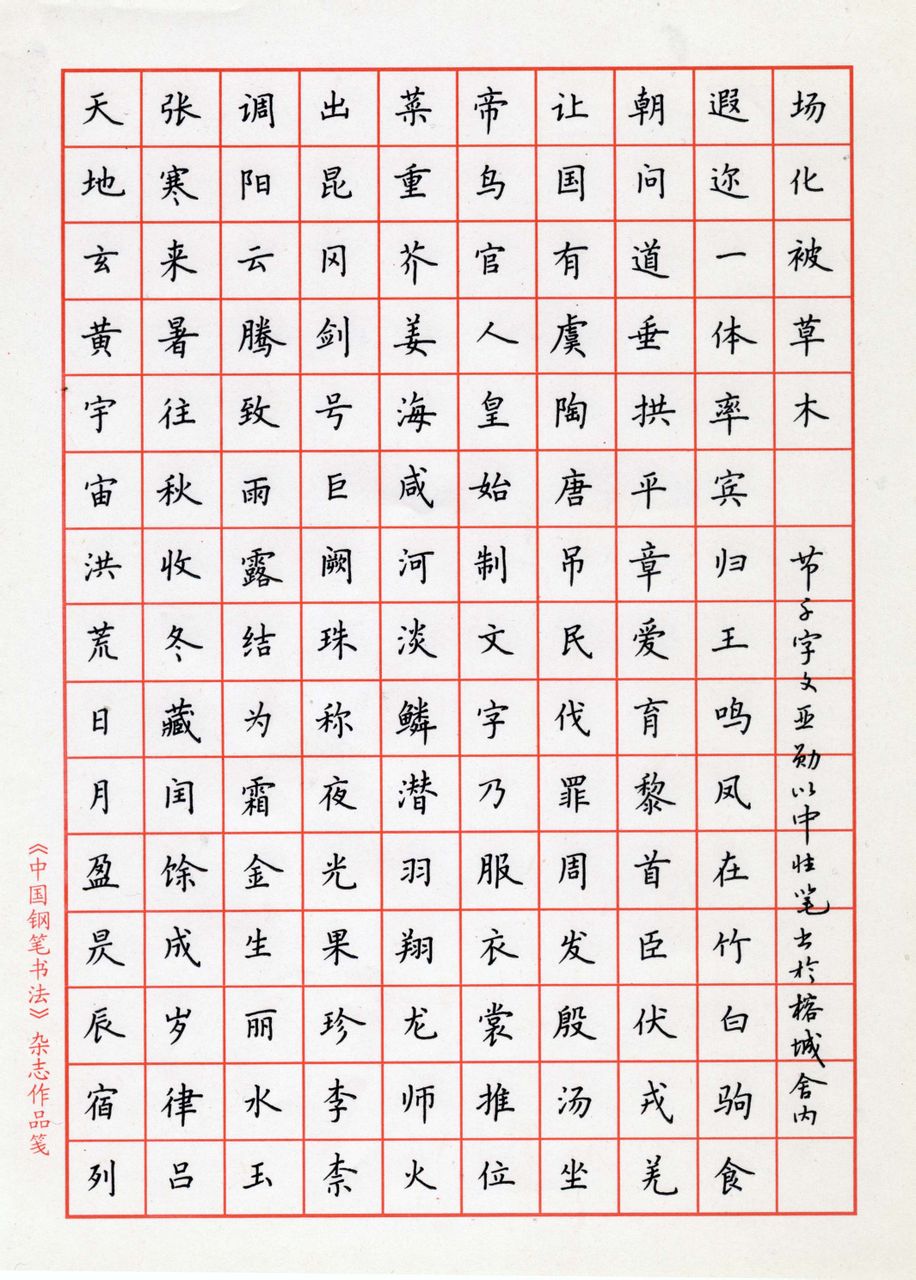 天地玄黄宇宙洪荒日月盈昃辰宿列
张寒来暑往秋收冬藏闰馀成岁律吕
调阳云腾致雨露结为霜金生丽水玉
出昆冈剑号巨阙珠称夜光果珍李柰
菜重芥姜海咸河淡鳞潜羽翔龙师火
帝鸟官人皇始制文字乃服衣裳推位
让国有虞陶唐吊民伐罪周发殷汤坐
朝问道垂拱平章爱育黎首臣伏戎羌
遐迩一体率宾归王鸣凤在竹白驹食
场化被草木
节千字文亚勋以中性笔书於榕城舍内
《中国钢笔书法》杂志作品笺